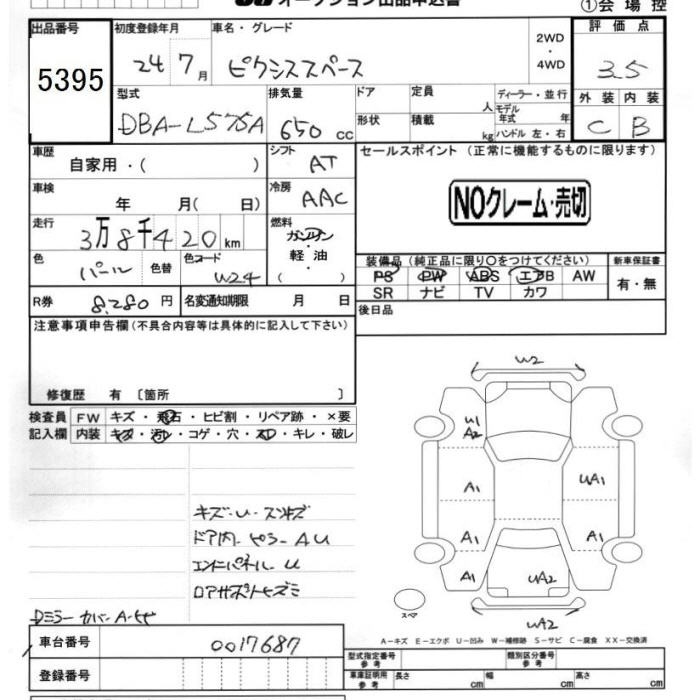 オークション出品申込書 ①会場控
出品番号 初度登録年月 車名・グレード 評価点
5395 24 7月 ピクシススペース 2WD・4WD 3.5
型式 排気量 ドア 定員 人 ディーラー・並行 外装 内装
DBA-L575A 650 CC 形状 積載 kg モデル年式 年 C B
ハンドル 左・右
車歴 自家用・( ) シフト AT セールスポイント (正常に機能するものに限ります)
車検 年 月( 日) 冷房 AAC
NOクレーム・売切
走行 3万8千420km 燃料 ガソリン・軽油
色 パール 色替 色コード W24
装備品 (純正品に限り〇をつけてください) 新車保証書
PS PW ABS エアB AW 有・無
SR ナビ TV カワ
R券 8,280円 名変通知期限 月 日 後日品
注意事項申告欄(不具合内容等は具体的に記入して下さい)
修復歴 有 [箇所 ]
検査員 FW キズ・飛石・ヒビ割・リペア跡・×要
記入欄 内装 キズ・汚レ・コゲ・穴・スレ・キレ・破レ
キズ・U・スリキズ
ドア内・ピラーAU
エンドパネルU
ロアサポートヒズミ
DミラーカバーA・ヒビ
W2
U1
A2
A1
UA1
A1
A1
A1
UA2
UA2
スペア
A-キズ E-エクボ U-凹み W-補修跡 S-サビ C-腐食 XX-交換済
車台番号 0017687
型式指定番号 参考 類別区分番号 参考
登録番号
車庫証明用 参考 長さ cm 幅 cm 高さ cm